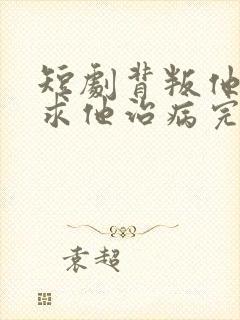 短劇背叛他
求他治病完
袁超